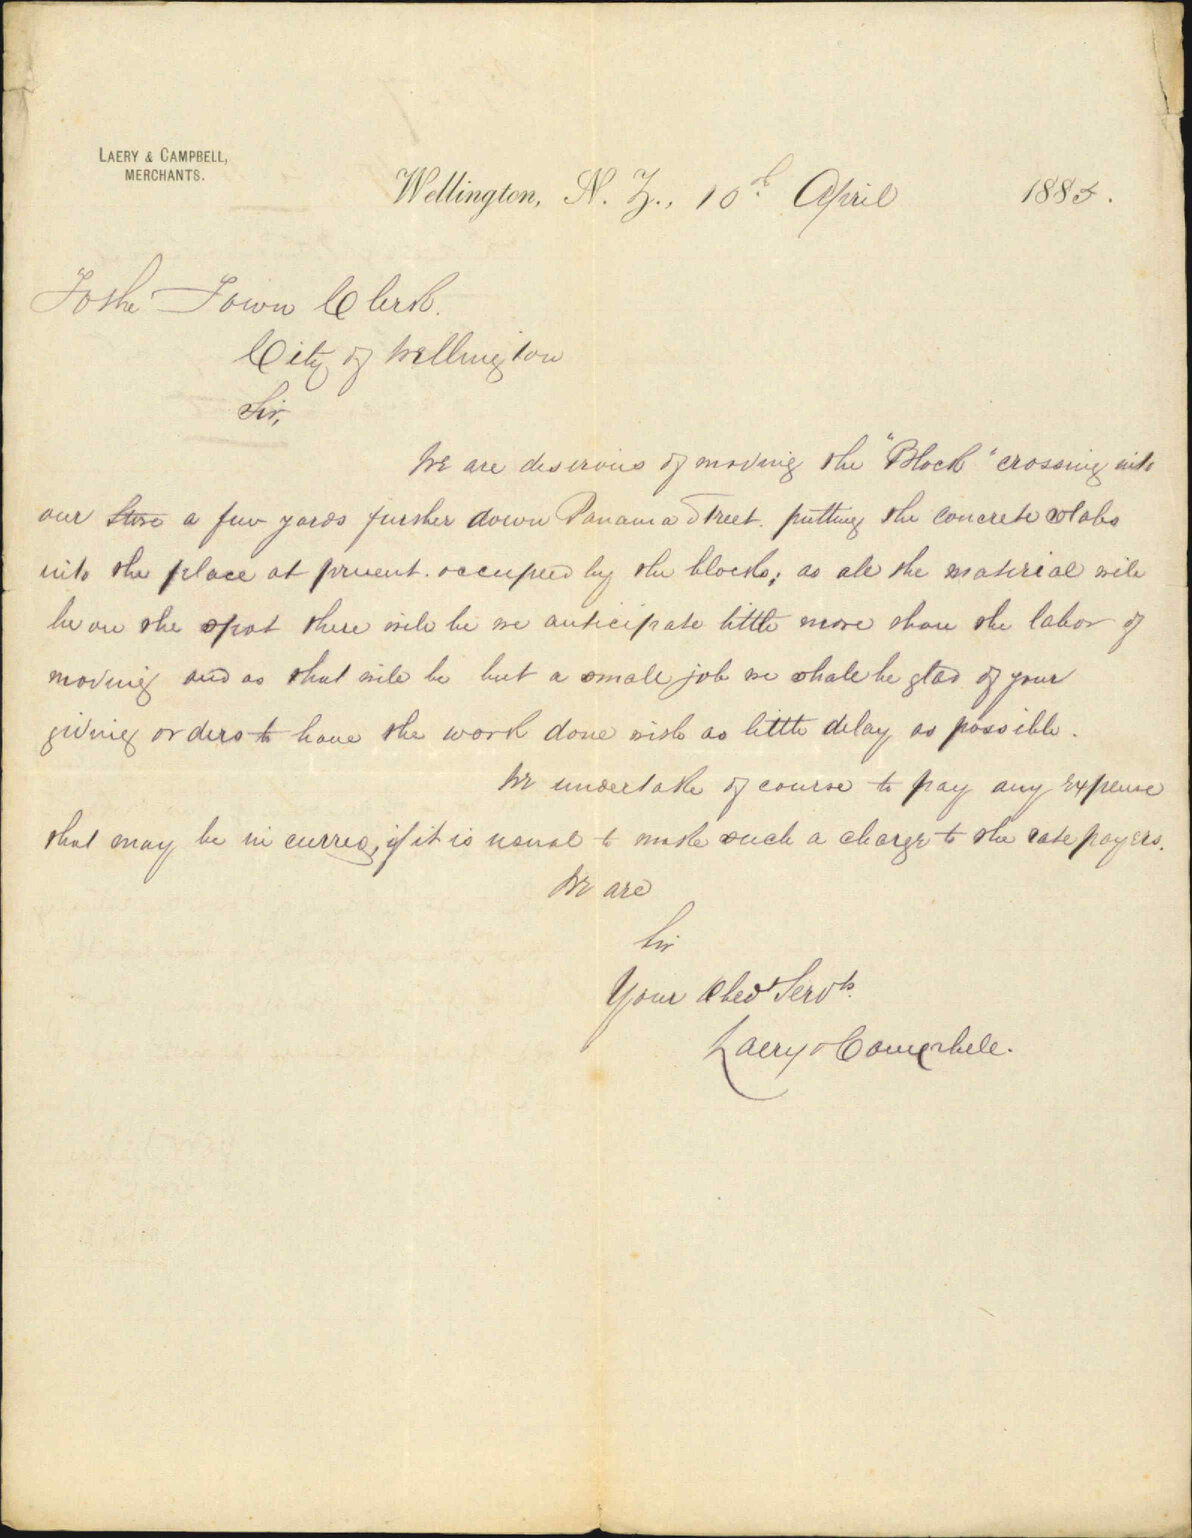 LAERY & CAMPBELL,
MERCHANTS.
Wellington, N. Z., 10th April 1885.
To the Town Clerk.
City of Wellington
Sir,
We are desirous of moving the "Block" crossing into
our Store a few yards further down Panama Street. putting the concrete slabs
into the place at present occupied by the blocks; as all the material will
be on the spot there will be we anticipate little more than the labor of
moving and as that will be but a small job we shall be glad of your
giving orders to have the work done with as little delay as possible.
We undertake of course to pay any expense
that may be incurred, if it is usual to make such a charge to the rate payers.
We are
Sir
Your Obedt Servts.
Laery & Campbell.